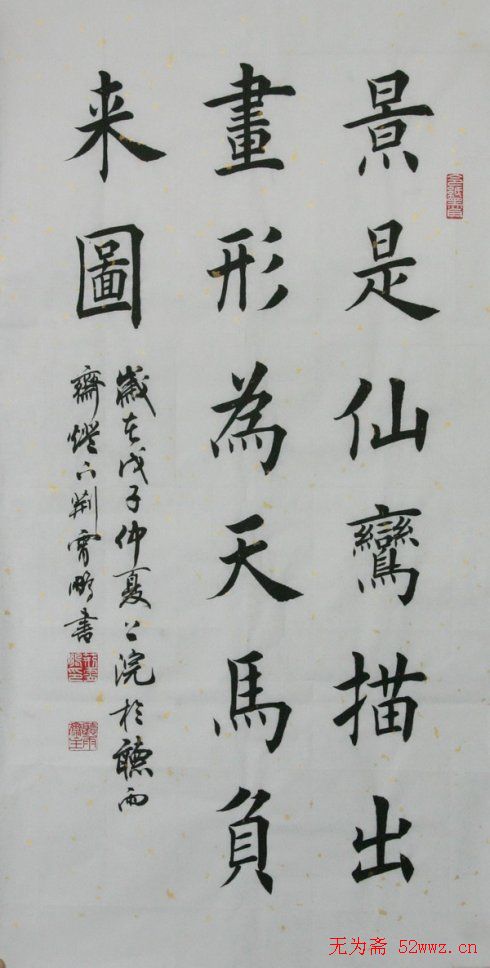 景是仙鸞描出
畫形為天馬負
来圖
歲在戊子仲夏上浣於聽雨
齋燈下荆霄鵬書
无为斋 52wwz.cn